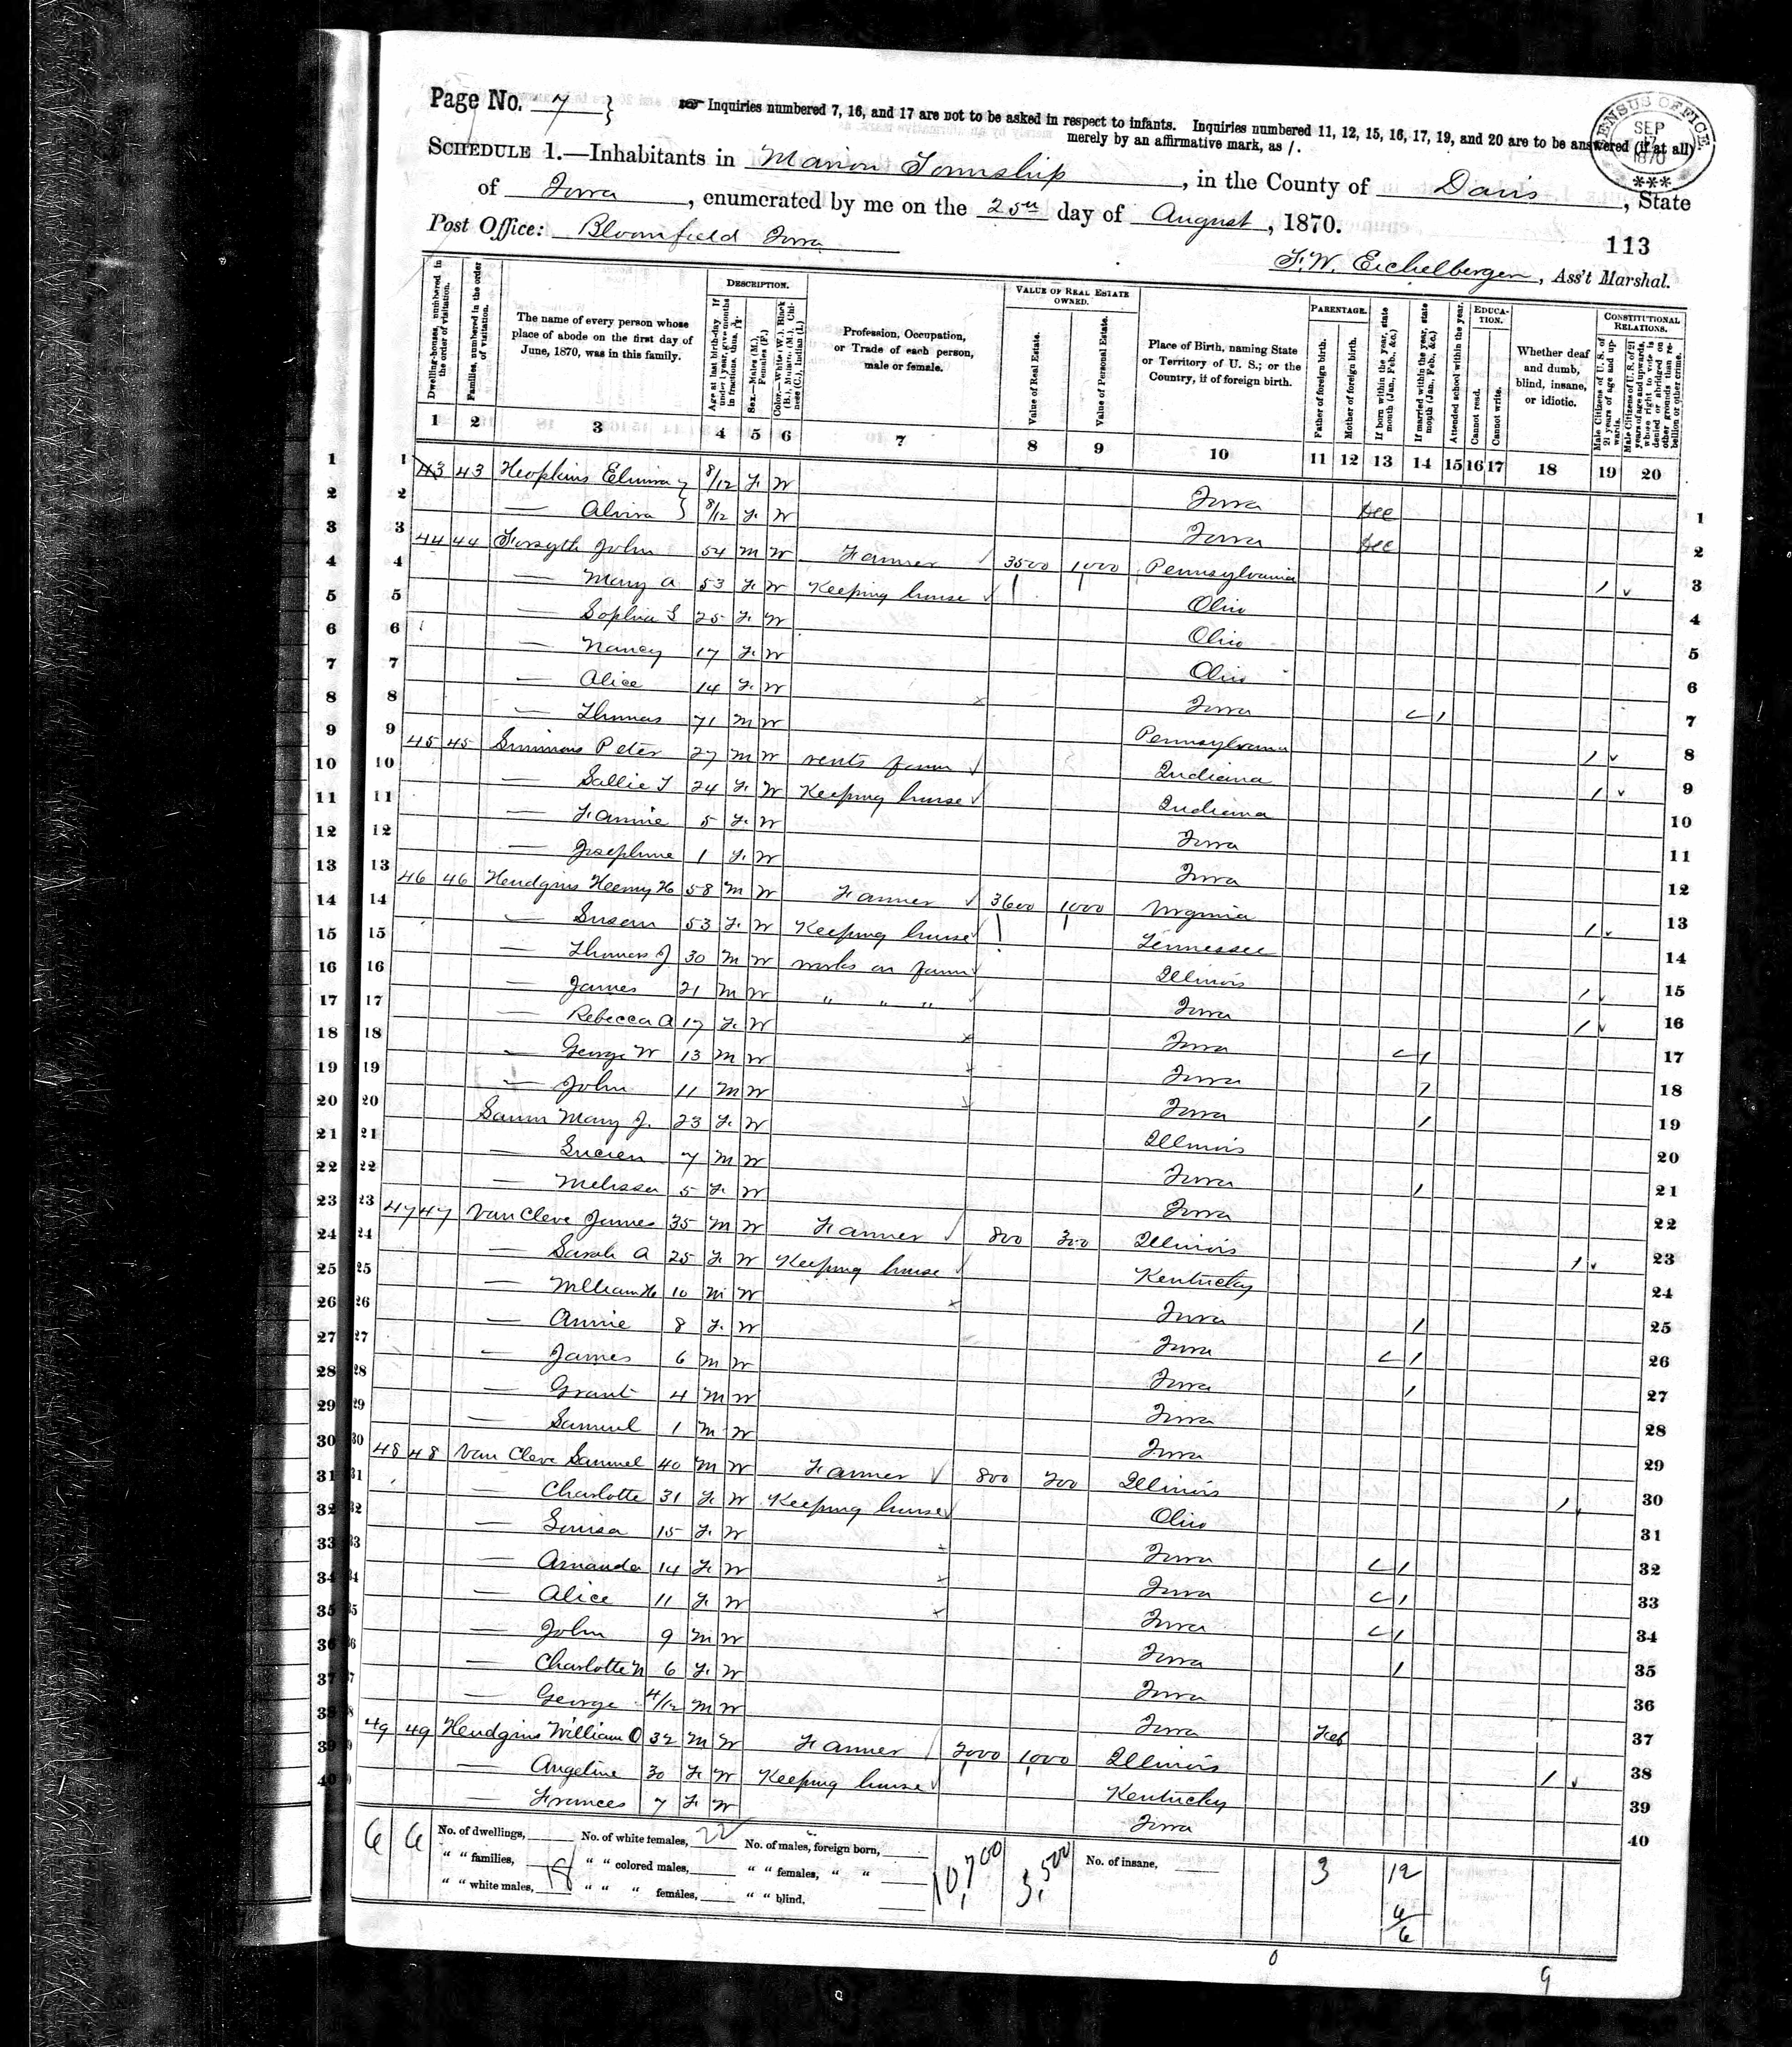 Page No. 7 }
Inquiries numbered 7, 16, and 17 are not to be asked in respect to infants. Inquiries numbered 11, 12, 15, 16, 17, 19, and 20 are to be answered (if at all)
merely by an affirmative mark, as /.
CENSUS OFFICE SEP 17 1870 ***
SCHEDULE 1.—Inhabitants in Marion Township, in the County of Davis, State
of Iowa, enumerated by me on the 25th day of August, 1870.
Post Office: Bloomfield Iowa
113
F. W. Eichelberger, Ass't Marshal.
Dwelling-houses, numbered in the order of visitation.
Families, numbered in the order of visitation.
The name of every person whose place of abode on the first day of June, 1870, was in this family.
DESCRIPTION.
Age at last birth-day. If under 1 year, give months in fractions, thus, 3/12.
Sex.—Males (M.), Females (F.)
Color.—White (W.), Black (B.), Mulatto (M.), Chinese (C.), Indian (I.)
Profession, Occupation, or Trade of each person, male or female.
VALUE OF REAL ESTATE OWNED.
Value of Real Estate.
Value of Personal Estate.
Place of Birth, naming State or Territory of U. S.; or the Country, if of foreign birth.
PARENTAGE.
Father of foreign birth.
Mother of foreign birth.
If born within the year, state month (Jan., Feb., &c.)
If married within the year, state month (Jan., Feb., &c.)
Attended school within the year.
EDUCATION.
Cannot read.
Cannot write.
Whether deaf and dumb, blind, insane, or idiotic.
CONSTITUTIONAL RELATIONS.
Male Citizens of U. S. of 21 years of age and upwards.
Male Citizens of U. S. of 21 years of age and upwards, whose right to vote is denied or abridged on other grounds than rebellion or other crime.
1 2 3 4 5 6 7 8 9 10 11 12 13 14 15 16 17 18 19 20
1 43 43 Hopkins Elmira 8/12 F W Iowa Dec 1
2 — Alvira 8/12 F W Iowa Dec 2
3 44 44 Forsyth John 54 M W Farmer 3500 1000 Pennsylvania / 3
4 — Mary A 53 F W Keeping house Ohio 4
5 — Sophia S 25 F W Ohio 5
6 — Nancy 17 F W Ohio 6
7 — Alice 14 F W Iowa / 7
8 — Thomas 71 M W Pennsylvania / 8
9 45 45 Simmons Peter 27 M W rents farm Indiana / 9
10 — Sallie T 24 F W Keeping house Indiana 10
11 — Fannie 5 F W Iowa 11
12 — Josephine 1 F W Iowa 12
13 46 46 Hendgins Henry H 58 M W Farmer 3600 1000 Virginia / 13
14 — Susan 53 F W Keeping house Tennessee 14
15 — Thomas J 30 M W works on farm Illinois / 15
16 — James 21 M W " " " Iowa / 16
17 — Rebecca A 17 F W Iowa / 17
18 — George W 13 M W Iowa / 18
19 — John 11 M W Iowa / 19
20 Saum Mary J. 23 F W Illinois 20
21 — Lucien 7 M W Iowa / 21
22 — Melissa 5 F W Iowa 22
23 47 47 Van Cleve James 35 M W Farmer 800 300 Illinois / 23
24 — Sarah A 25 F W Keeping house Kentucky 24
25 — William H 10 M W Iowa / 25
26 — Annie 8 F W Iowa / 26
27 — James 6 M W Iowa / 27
28 — Grant 4 M W Iowa 28
29 — Samuel 1 M W Iowa 29
30 48 48 Van Cleve Samuel 40 M W Farmer 800 200 Illinois / 30
31 — Charlotte 31 F W Keeping house Ohio 31
32 — Louisa 15 F W Iowa / 32
33 — Amanda 14 F W Iowa / 33
34 — Alice 11 F W Iowa / 34
35 — John 9 M W Iowa / 35
36 — Charlotte N 6 F W Iowa 36
37 — George 4/12 M W Iowa Feb 37
38 49 49 Hendgins William O 32 M W Farmer 2000 1000 Illinois / 38
39 — Angeline 30 F W Keeping house Kentucky 39
40 — Frances 7 F W Iowa 40
6 6 No. of dwellings, No. of white females, 22 No. of males, foreign born, 10,700 3,500 No. of insane, 3 12
" " families, " " colored males, " " females, " "
" " white males, 18 " " " females, " " blind,
6/6
0 9